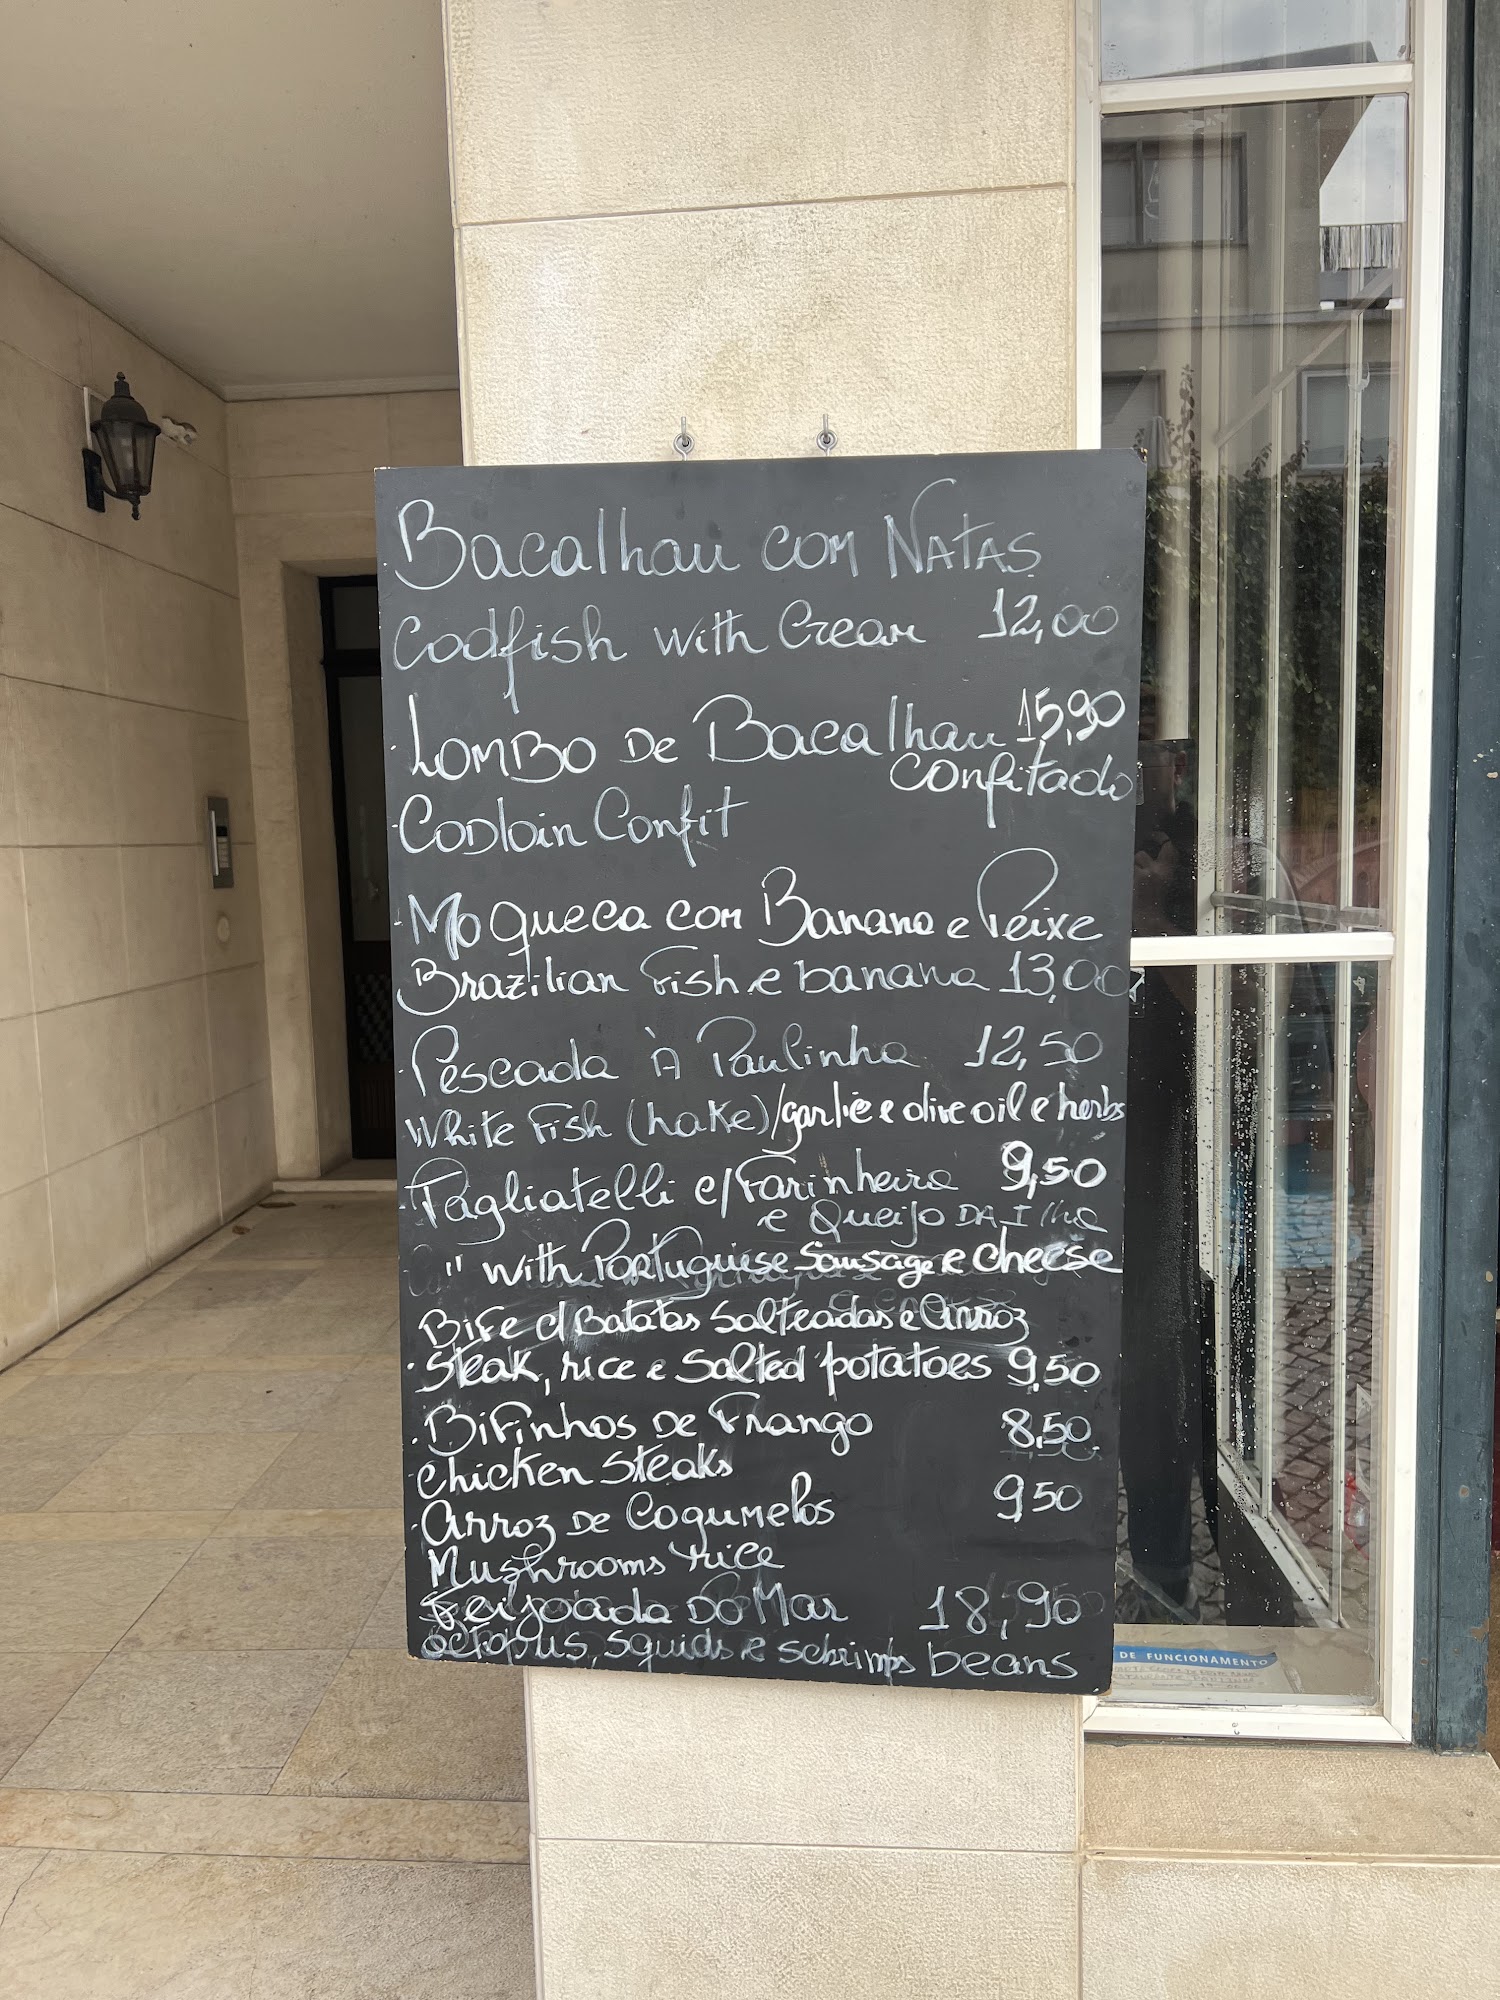 Bacalhau com NATAS
Codfish with Cream 12,00
LOMBO De Bacalhau 15,90
confitado
Codloin Confit
Moqueca com Banana e Peixe
Brazilian Fish e banana 13,00
Pescada À Paulinha 12,50
White Fish (hake)/garlic e olive oil e herbs
Tagliatelli c/Farinheira 9,50
e Queijo DA Ilha
" with Portuguese Sausage e cheese
Bife c/Batatas Salteadas e Arroz
Steak, rice e Salted potatoes 9,50
Bifinhos De Frango 8,50
chicken Steaks
Arroz De Cogumelos 9,50
Mushrooms rice
Feijoada Do Mar 18,90
octopus, squids e schrimps beans
DE FUNCIONAMENTO